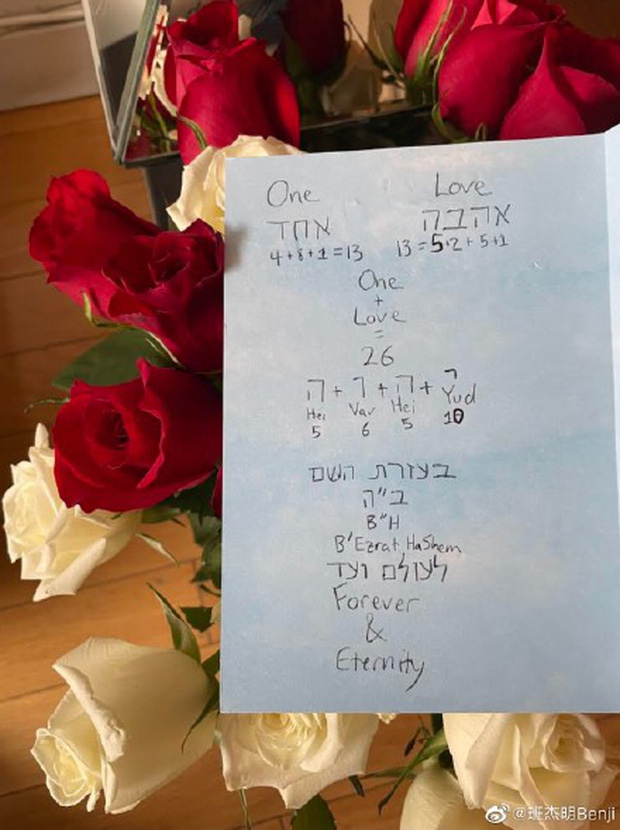 One Love
אחד אהבה
4+8+1=13 13=5+2+5+1
One
+
Love
=
26
ה + ו + ה + י
Hei Vav Hei Yud
5 6 5 10
בעזרת השם
ב״ה
B"H
B'Ezrat HaShem
לעולם ועד
Forever
&
Eternity
@班杰明Benji